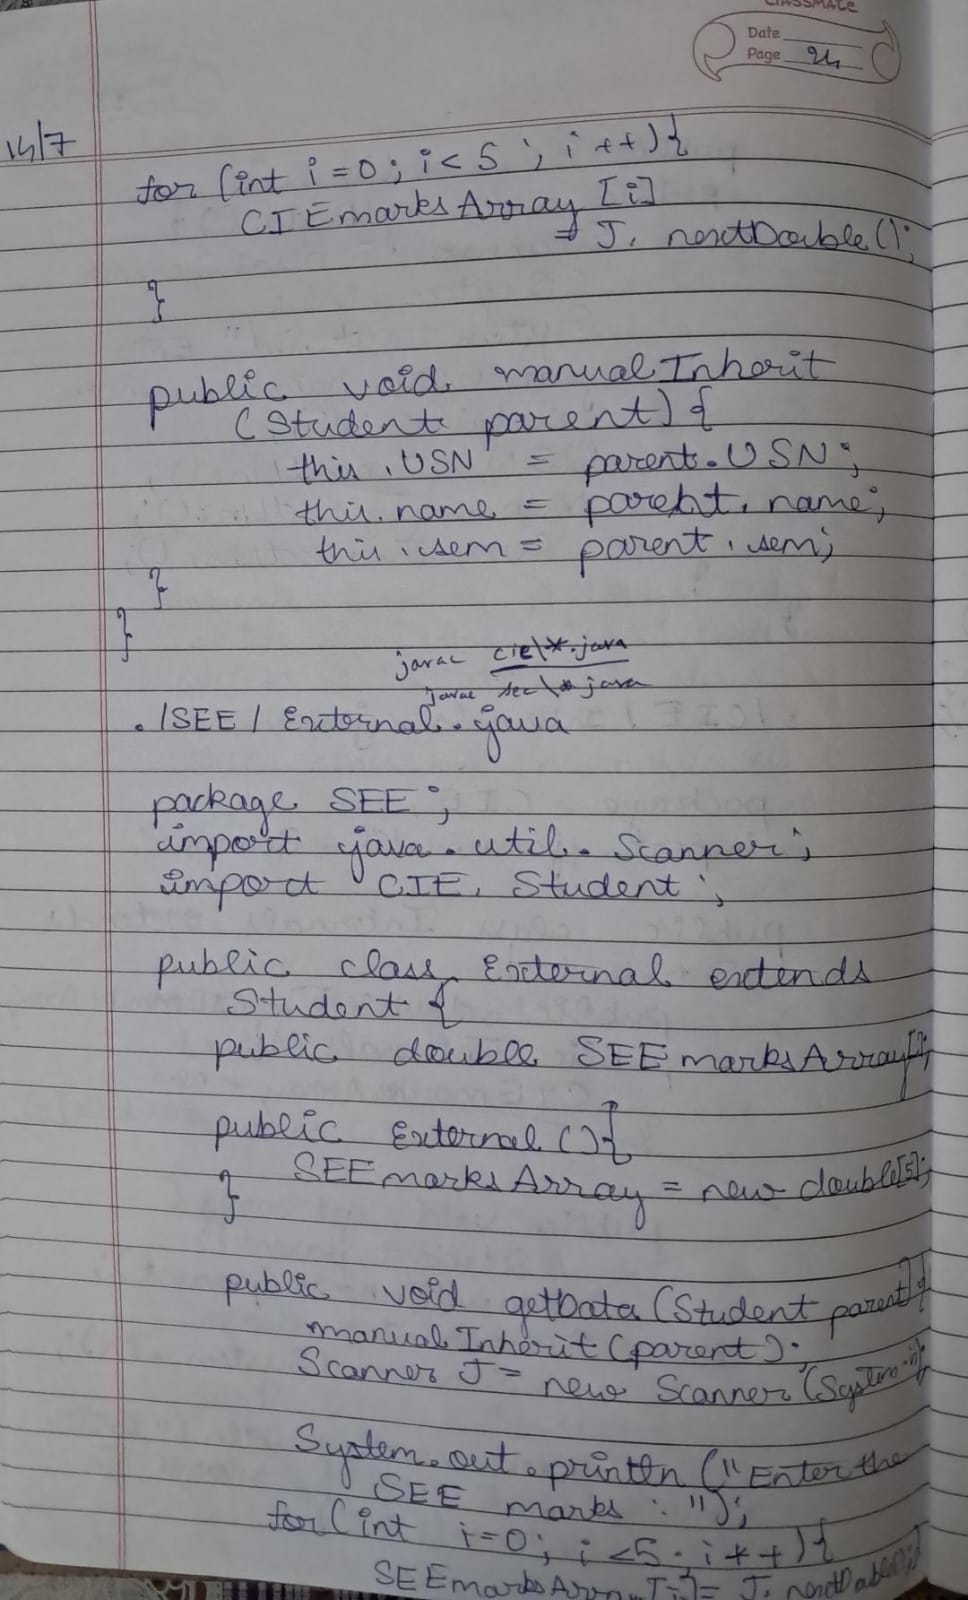 CLASSMATE
Date
Page 24
14/7
for (int i=0; i<5; i++){
CIEmarksArray [i]
= J. nextDouble();
}
public void manualInherit
(Student parent) {
this.USN = parent.USN;
this.name = parent.name;
this.sem = parent.sem;
}
}
javac cie\*.java
javac see\*java
./SEE/External.java
package SEE;
import java.util.Scanner;
import CIE.Student;
public class External extends
Student {
public double SEEmarksArray[];
public External(){
SEEmarksArray = new double[5];
}
public void getData (Student parent){
manualInherit (parent);
Scanner J = new Scanner (System.in);
System.out.println ("Enter the
SEE marks : ");
for (int i=0; i<5; i++){
SEEmarksArray[i]= J. nextDouble();